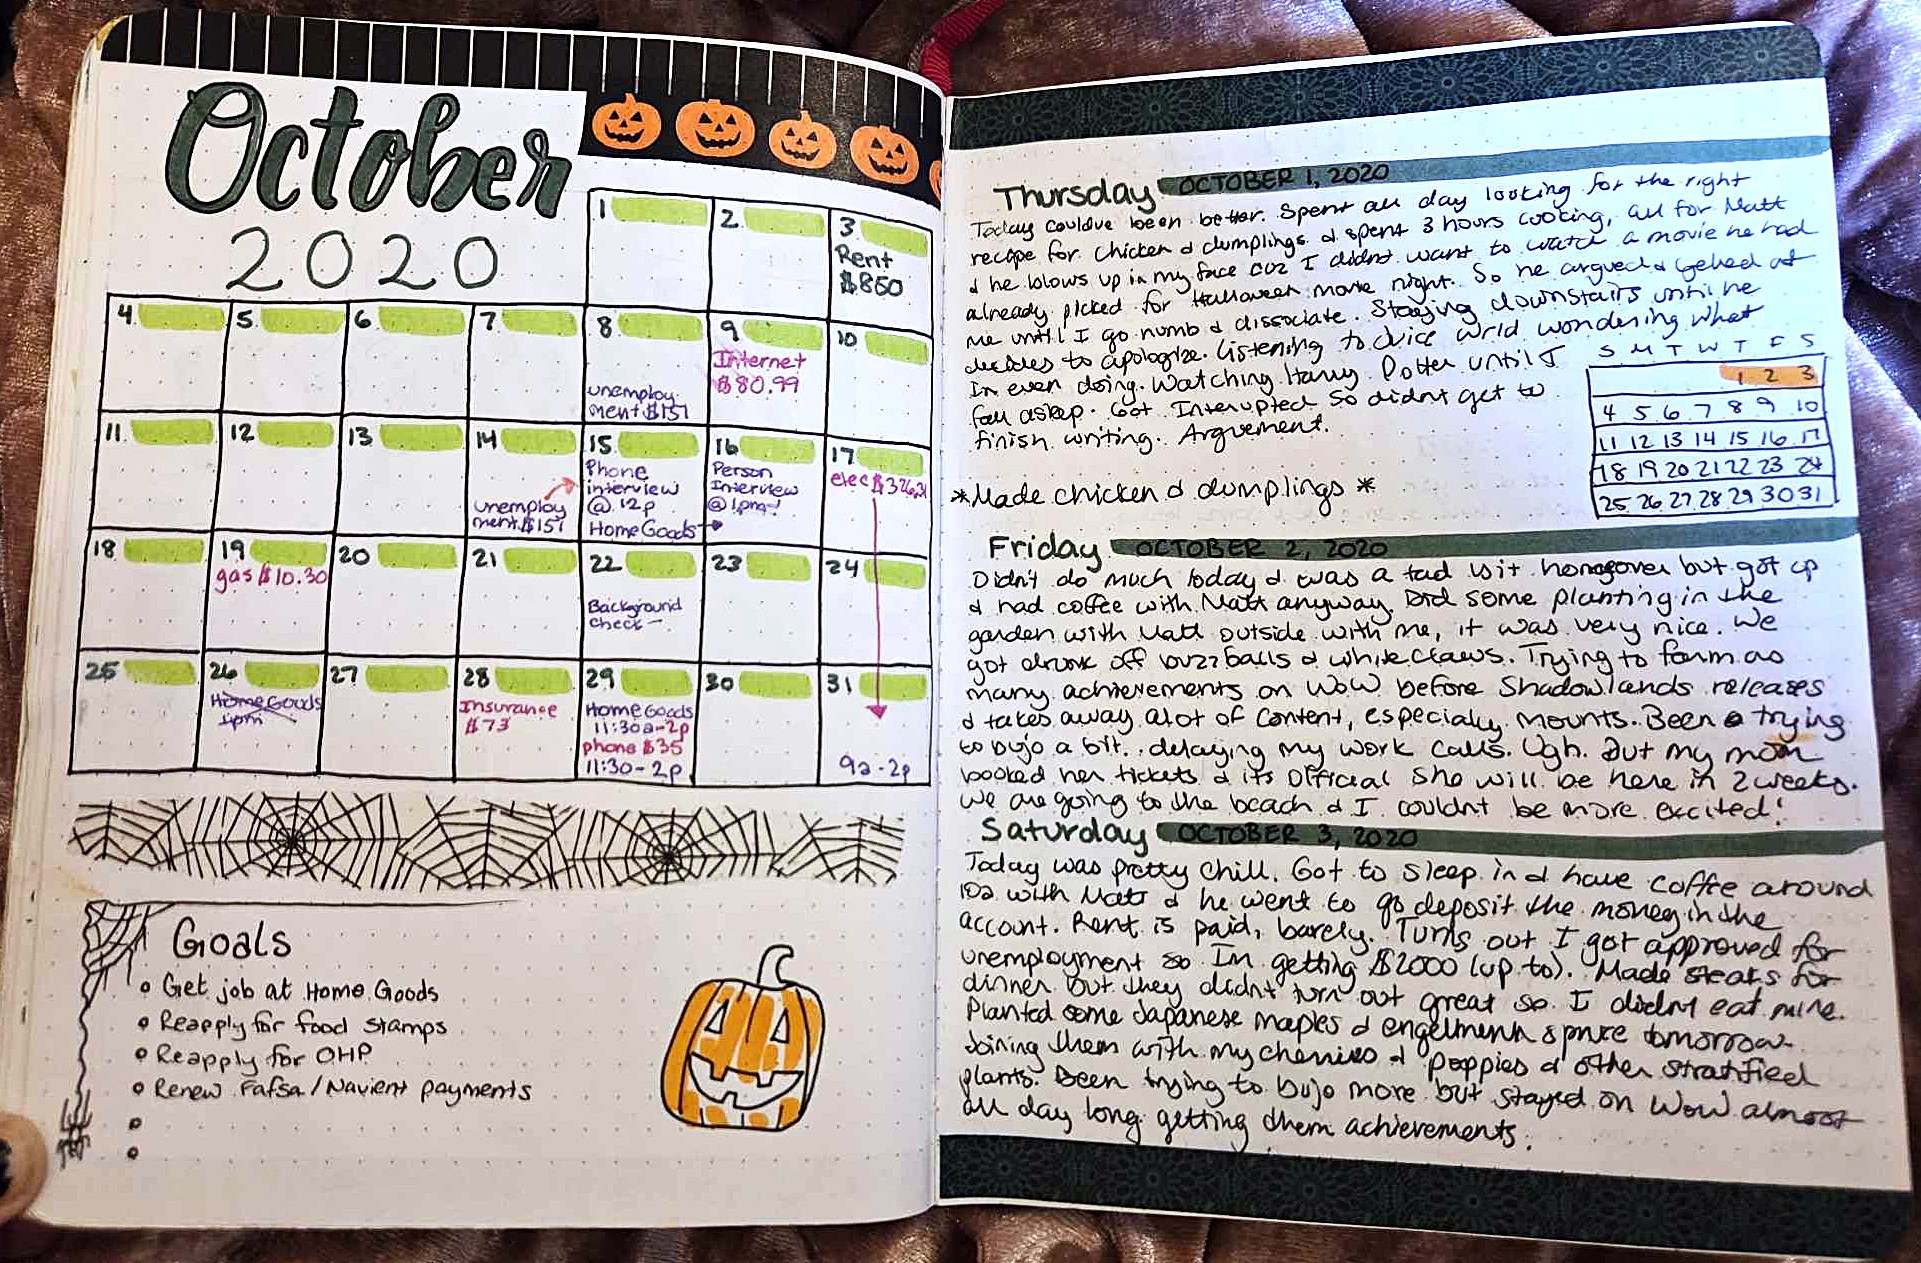 October
2020
1
2
3
Rent
$850
4
5
6
7
8
unemploy
ment $151
9
Internet
$80.99
10
11
12
13
14
unemploy
ment $151
15
Phone
interview
@ 12p
HomeGoods
16
Person
Interview
@ 1pm!
17
elec $326.31
18
19
gas $10.30
20
21
22
Background
check
23
24
25
26
HomeGoods
1pm
27
28
Insurance
$73
29
HomeGoods
11:30a-2p
phone $35
11:30-2p
30
31
9a-2p
Goals
Get job at Home Goods
Reapply for food stamps
Reapply for OHP
Renew Fafsa/Navient payments
Thursday OCTOBER 1, 2020
Today couldve been better. Spent all day looking for the right
recipe for chicken & dumplings & spent 3 hours cooking, all for Matt
& he blows up in my face cuz I didnt want to watch a movie he had
already picked for Halloween movie night. So he argued & yelled at
me until I go numb & dissociate. Staying downstairs until he
decides to apologize. Listening to Juice Wrld wondering what
Im even doing. Watching Harry Potter until I
fall asleep. Got Interupted so didnt get to
finish writing. Arguement.
*Made chicken & dumplings*
S M T W T F S
1 2 3
4 5 6 7 8 9 10
11 12 13 14 15 16 17
18 19 20 21 22 23 24
25 26 27 28 29 30 31
Friday OCTOBER 2, 2020
Didn't do much today & was a tad bit hongover but got up
& had coffee with Matt anyway. Did some planting in the
garden with Matt outside with me, it was very nice. We
got drunk off buzzballs & whiteclaws. Trying to farm as
many achievements on WoW before Shadowlands releases
& takes away alot of content, especialy mounts. Been trying
to bujo a bit.. delaying my work calls. Ugh. But my mom
booked her tickets & its official she will be here in 2 weeks.
We are going to the beach & I couldnt be more excited!
Saturday OCTOBER 3, 2020
Today was pretty chill. Got to sleep in & have coffee around
10a with Matt & he went to go deposit the money in the
account. Rent is paid, barely. Turns out I got approved for
unemployment so Im getting $2000 (up to). Made steaks for
dinner but they didnt turn out great so I didnt eat mine.
Planted some Japanese maples & engelmenn spruce tomorrow.
Joining them with my cherries & poppies & other stratified
plants. Been trying to bujo more but stayed on WoW almost
all day long getting them achievements.